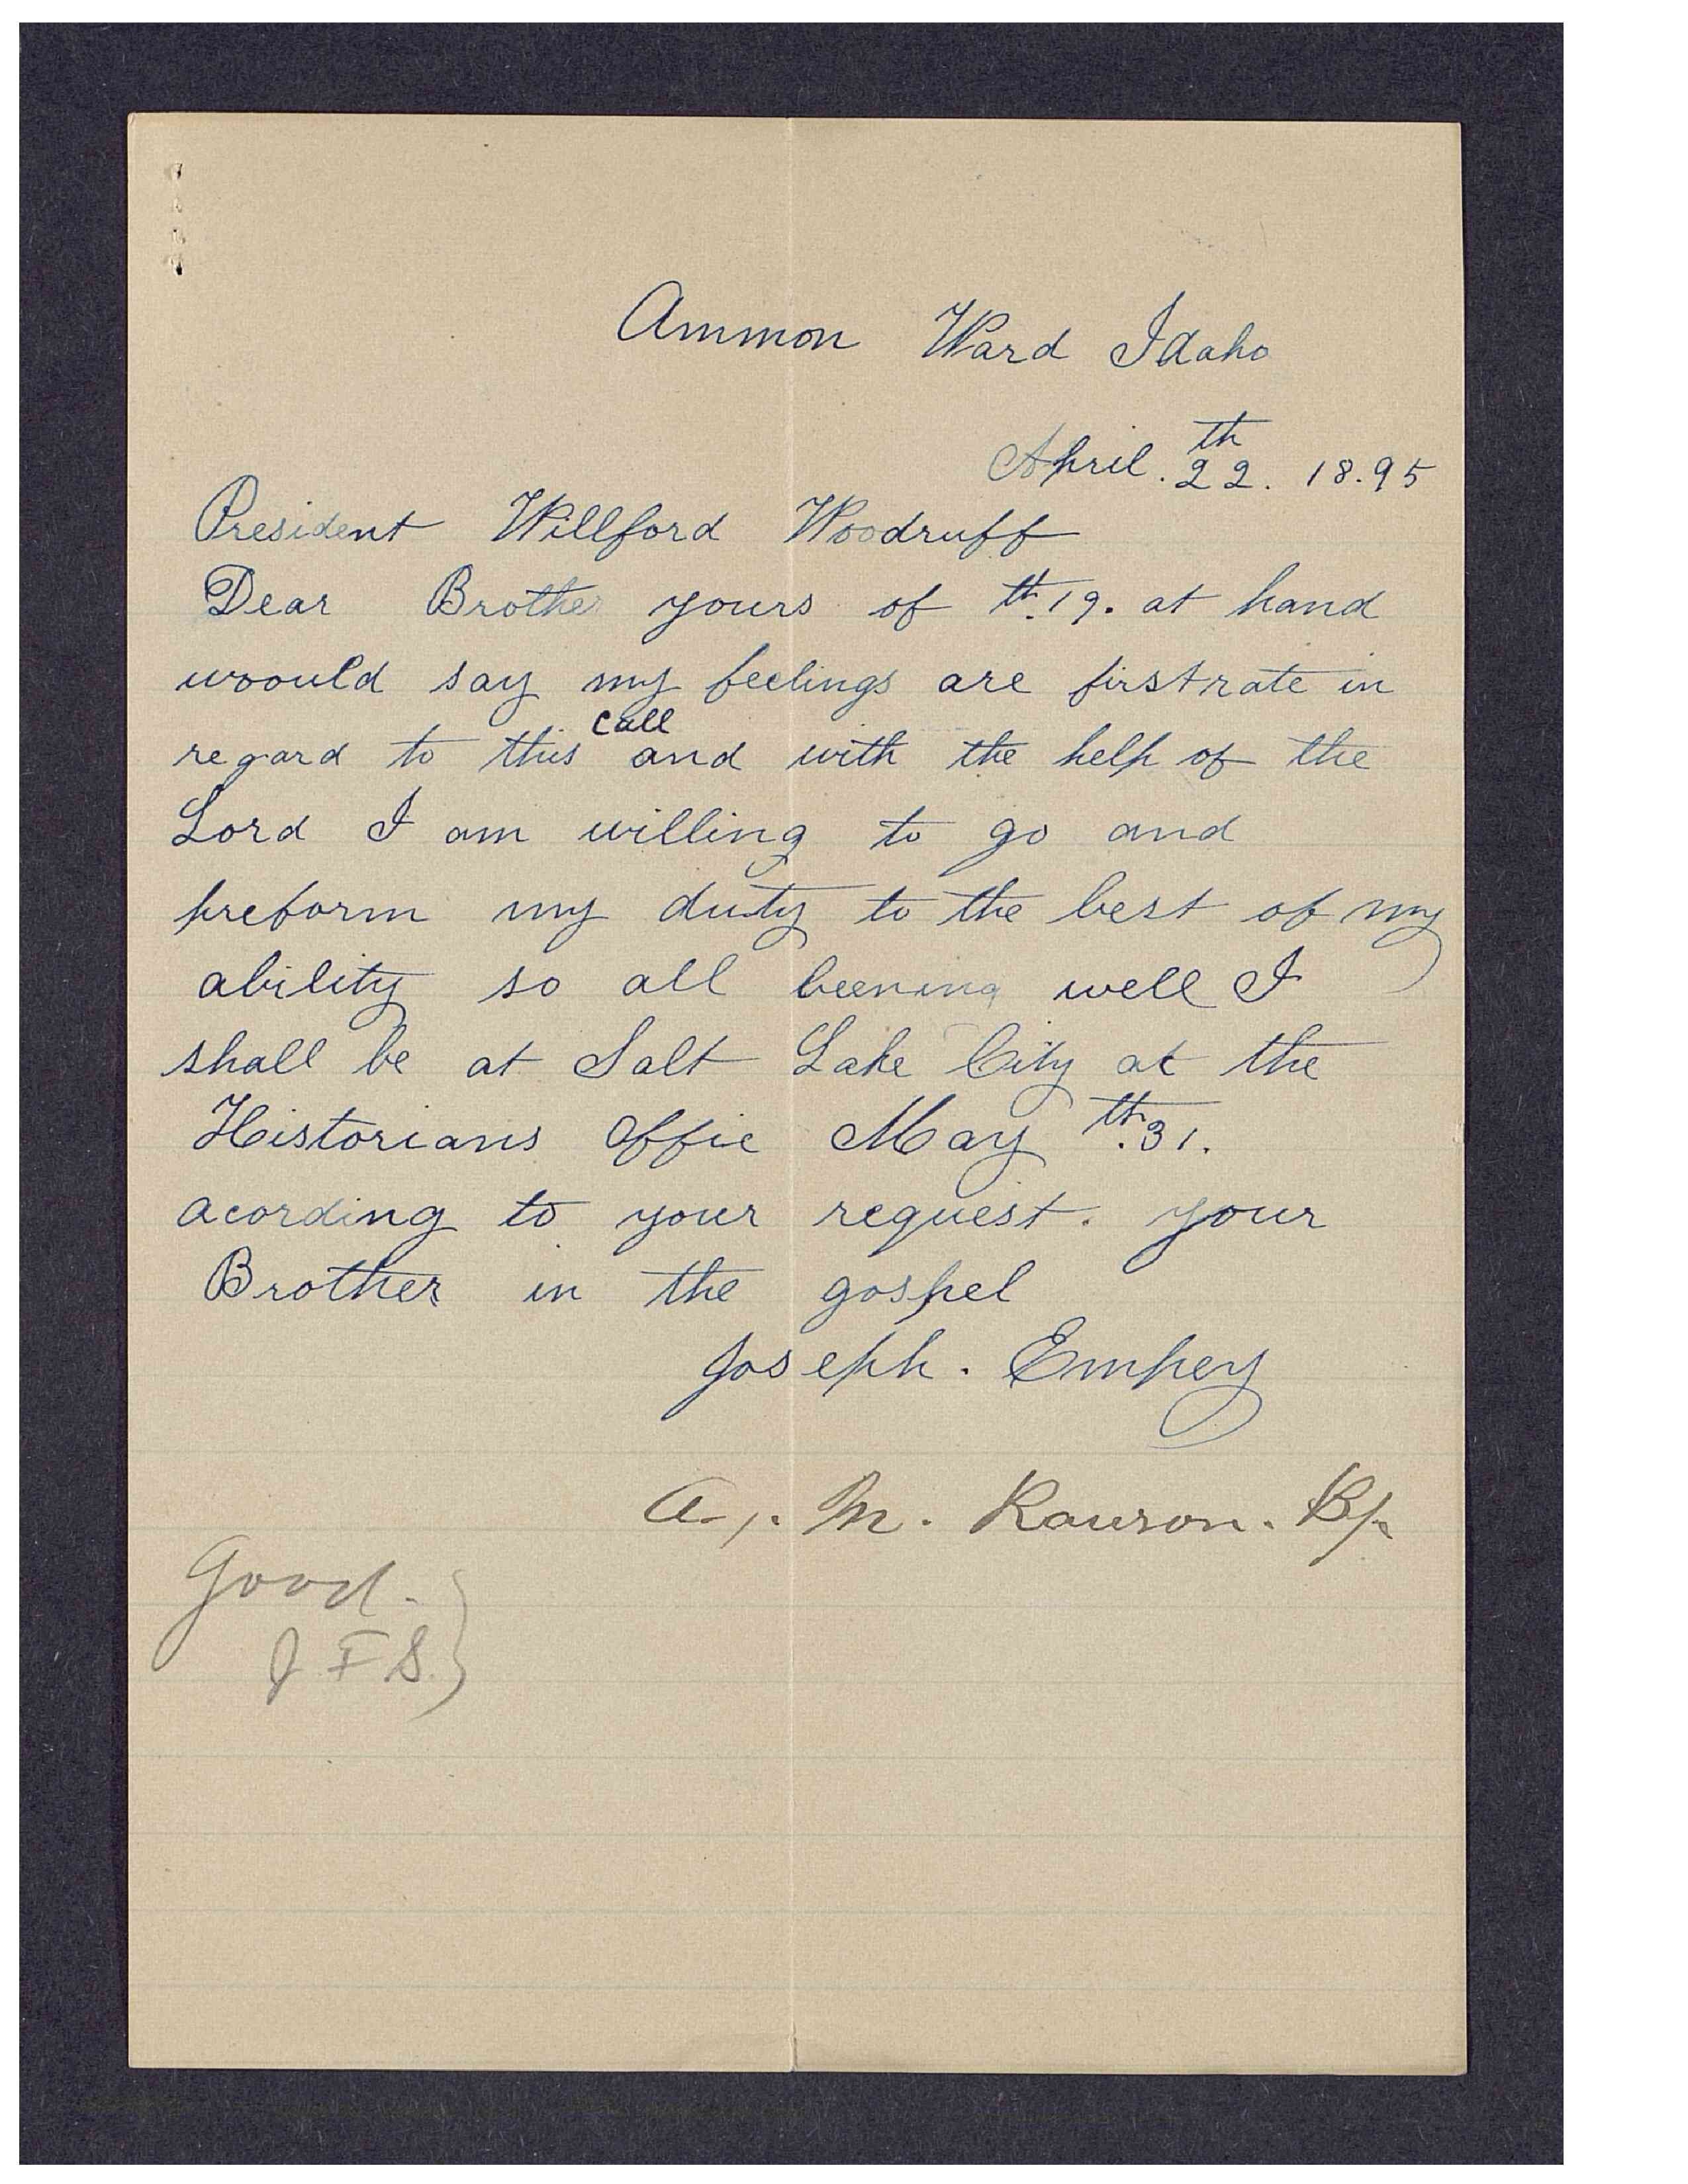 Ammon Ward Idaho
April. 22th. 18.95
President Willford Woodruff
Dear Brother yours of th.19. at hand
woould say my feelings are firstrate in
call
regard to this and with the help of the
Lord I am willing to go and
preform my duty to the best of my
ability so all beening well I
shall be at Salt Lake City at the
Historians offie May th.31.
acording to your request. your
Brother in the gospel
Joseph. Empey
A. M. Rawson. Bp
Good.
J F S.